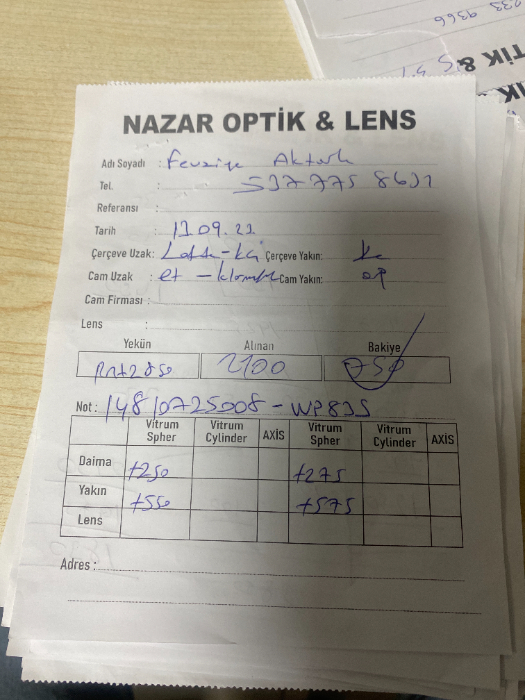 NAZAR OPTİK & LENS
Adı Soyadı : Fevziye Aktürk
Tel. : 537 775 8631
Referansı :
Tarih : 17.09.21
Çerçeve Uzak: Çerçeve Yakın:
Cam Uzak : et - Cam Yakın:
Cam Firması :
Lens :
Yekün Alınan Bakiye
2850 2100 750
Not : 148 10725008 - WP835
Vitrum Spher Vitrum Cylinder AXİS Vitrum Spher Vitrum Cylinder AXİS
Daima +250 +275
Yakın +550 +575
Lens
Adres :